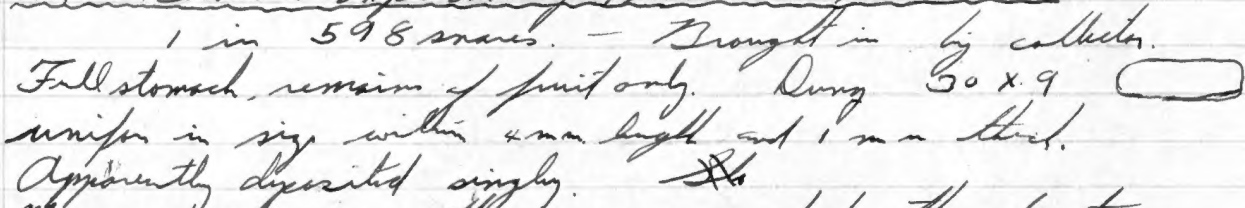 1 in 598 snares. - Brought in by collector.
Full stomach, remains of fruit only. Dung 30 x 9
uniform in size within 4 mm. length and 1 mm thick.
Apparently deposited singly.